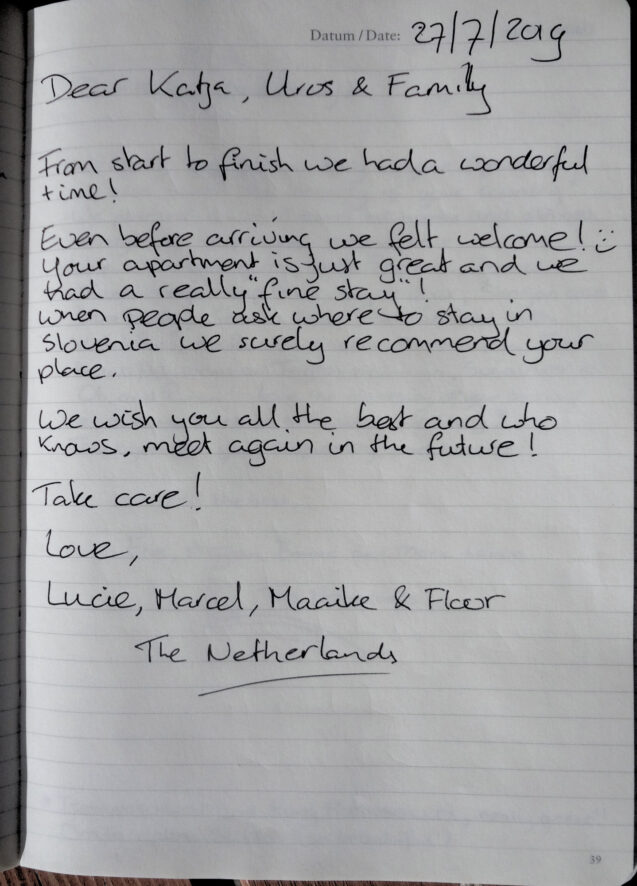 Datum / Date: 27/7/2019
Dear Katja, Uros & Family
From start to finish we had a wonderful
time!
Even before arriving we felt welcome! :)
Your apartment is just great and we
had a really "fine stay"!
When people ask where to stay in
Slovenia we surely recommend your
place.
We wish you all the best and who
knows, meet again in the future!
Take care!
Love,
Lucie, Marcel, Maaike & Floor
The Netherlands
39